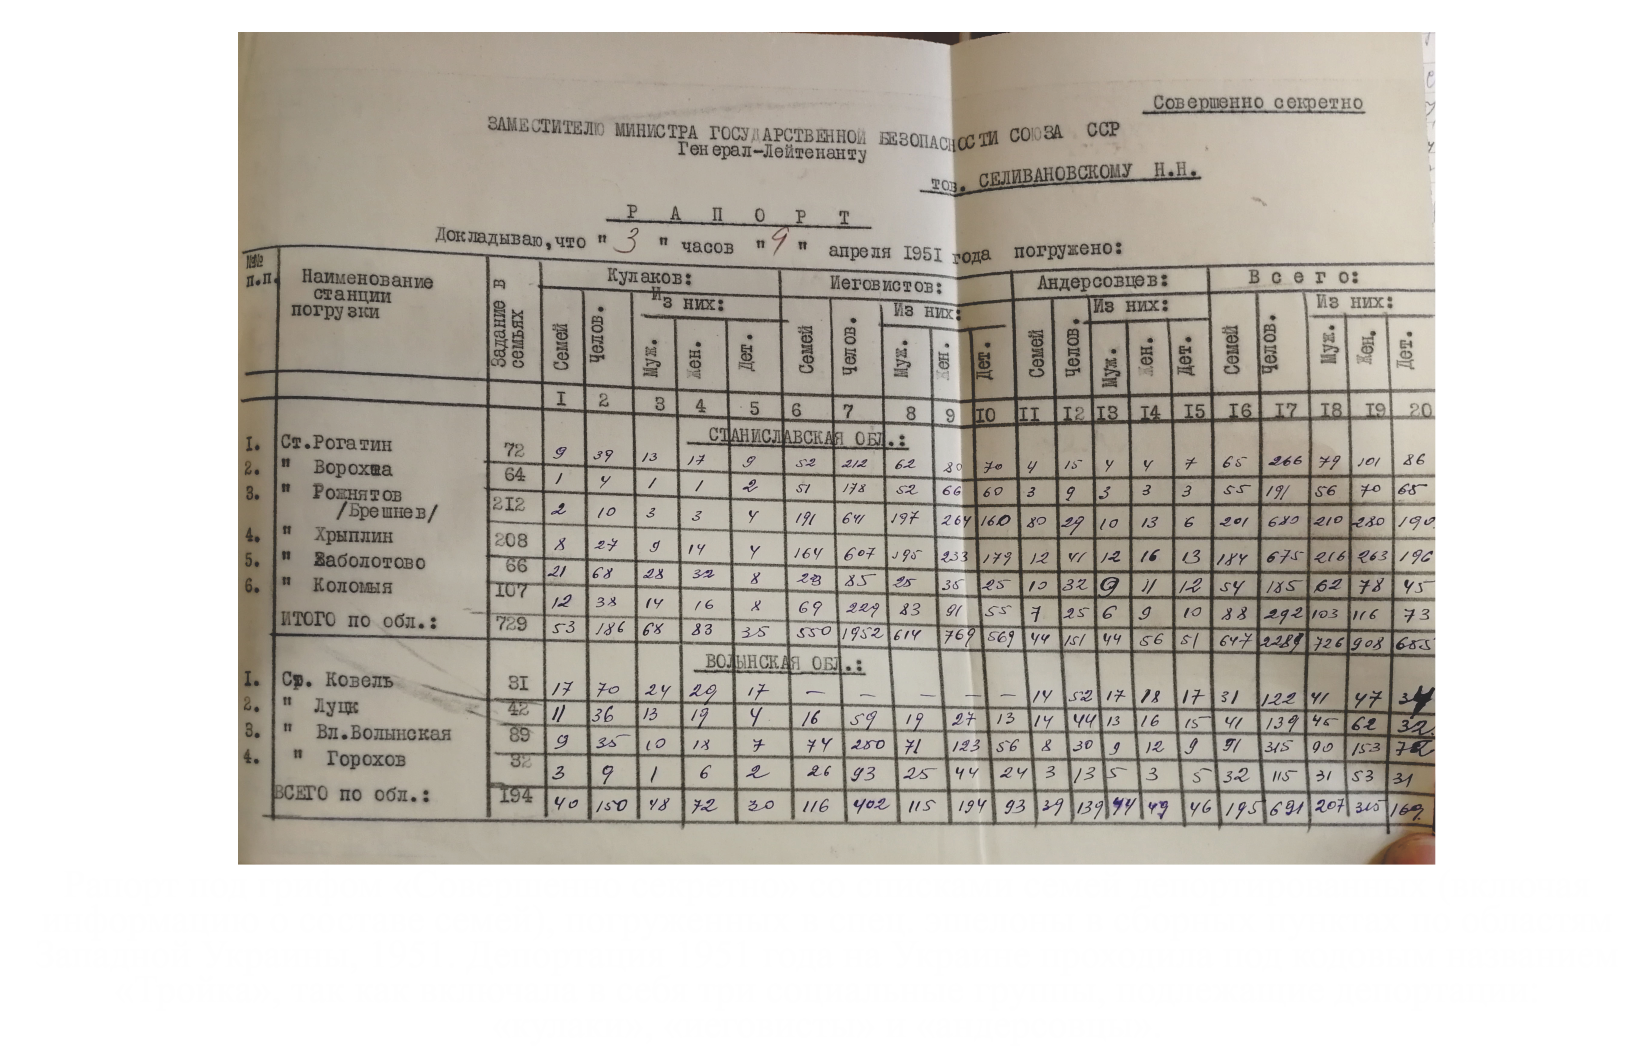 Совершенно секретно
ЗАМЕСТИТЕЛЮ МИНИСТРА ГОСУДАРСТВЕННОЙ БЕЗОПАСНОСТИ СОЮЗА ССР
Генерал-Лейтенанту
тов. СЕЛИВАНОВСКОМУ Н.Н.
Р А П О Р Т
Докладываю,что " 3 " часов " 9 " апреля 1951 года погружено:
№№ п.п. Наименование станции погрузки Задание в семьях Кулаков: Иеговистов: Андерсовцев: В с е г о:
Семей Челов. Из них: Муж. Жен. Дет. Семей Челов. Из них: Муж. Жен. Дет. Семей Челов. Из них: Муж. Жен. Дет. Семей Челов. Из них: Муж. Жен. Дет.
I 2 3 4 5 6 7 8 9 IO II I2 I3 I4 I5 I6 I7 I8 I9 20
СТАНИСЛАВСКАЯ ОБЛ.:
I. Ст.Рогатин 72 9 39 13 17 9 52 212 62 80 70 4 15 4 4 7 65 266 79 101 86
2. " Ворохта 64 1 4 1 1 2 51 178 52 66 60 3 9 3 3 3 55 191 56 70 65
3. " Рожнятов /Брешнев/ 212 2 10 3 3 4 191 641 197 264 160 80 29 10 13 6 201 680 210 280 190
4. " Хрыплин 208 8 27 9 14 4 164 607 195 233 179 12 41 12 16 13 184 675 216 263 196
5. " Заболотово 66 21 68 28 32 8 23 85 25 35 25 10 32 9 11 12 54 185 62 78 45
6. " Коломыя I07 12 38 14 16 8 69 229 83 91 55 7 25 6 9 10 88 292 103 116 73
ИТОГО по обл.: 729 53 186 68 83 35 550 1952 614 769 569 44 151 44 56 51 647 2289 726 908 655
ВОЛЫНСКАЯ ОБЛ.:
I. Ст. Ковель 31 17 70 24 29 17 — — — — — 14 52 17 18 17 31 122 41 47 34
2. " Луцк 42 11 36 13 19 4 16 59 19 27 13 14 44 13 16 15 41 139 45 62 32
3. " Вл.Волынская 89 9 35 10 18 7 74 250 71 123 56 8 30 9 12 9 91 315 90 153 72
4. " Горохов 32 3 9 1 6 2 26 93 25 44 24 3 13 5 3 5 32 115 31 53 31
ВСЕГО по обл.: I94 40 150 48 72 30 116 402 115 194 93 39 139 44 49 46 195 691 207 315 169